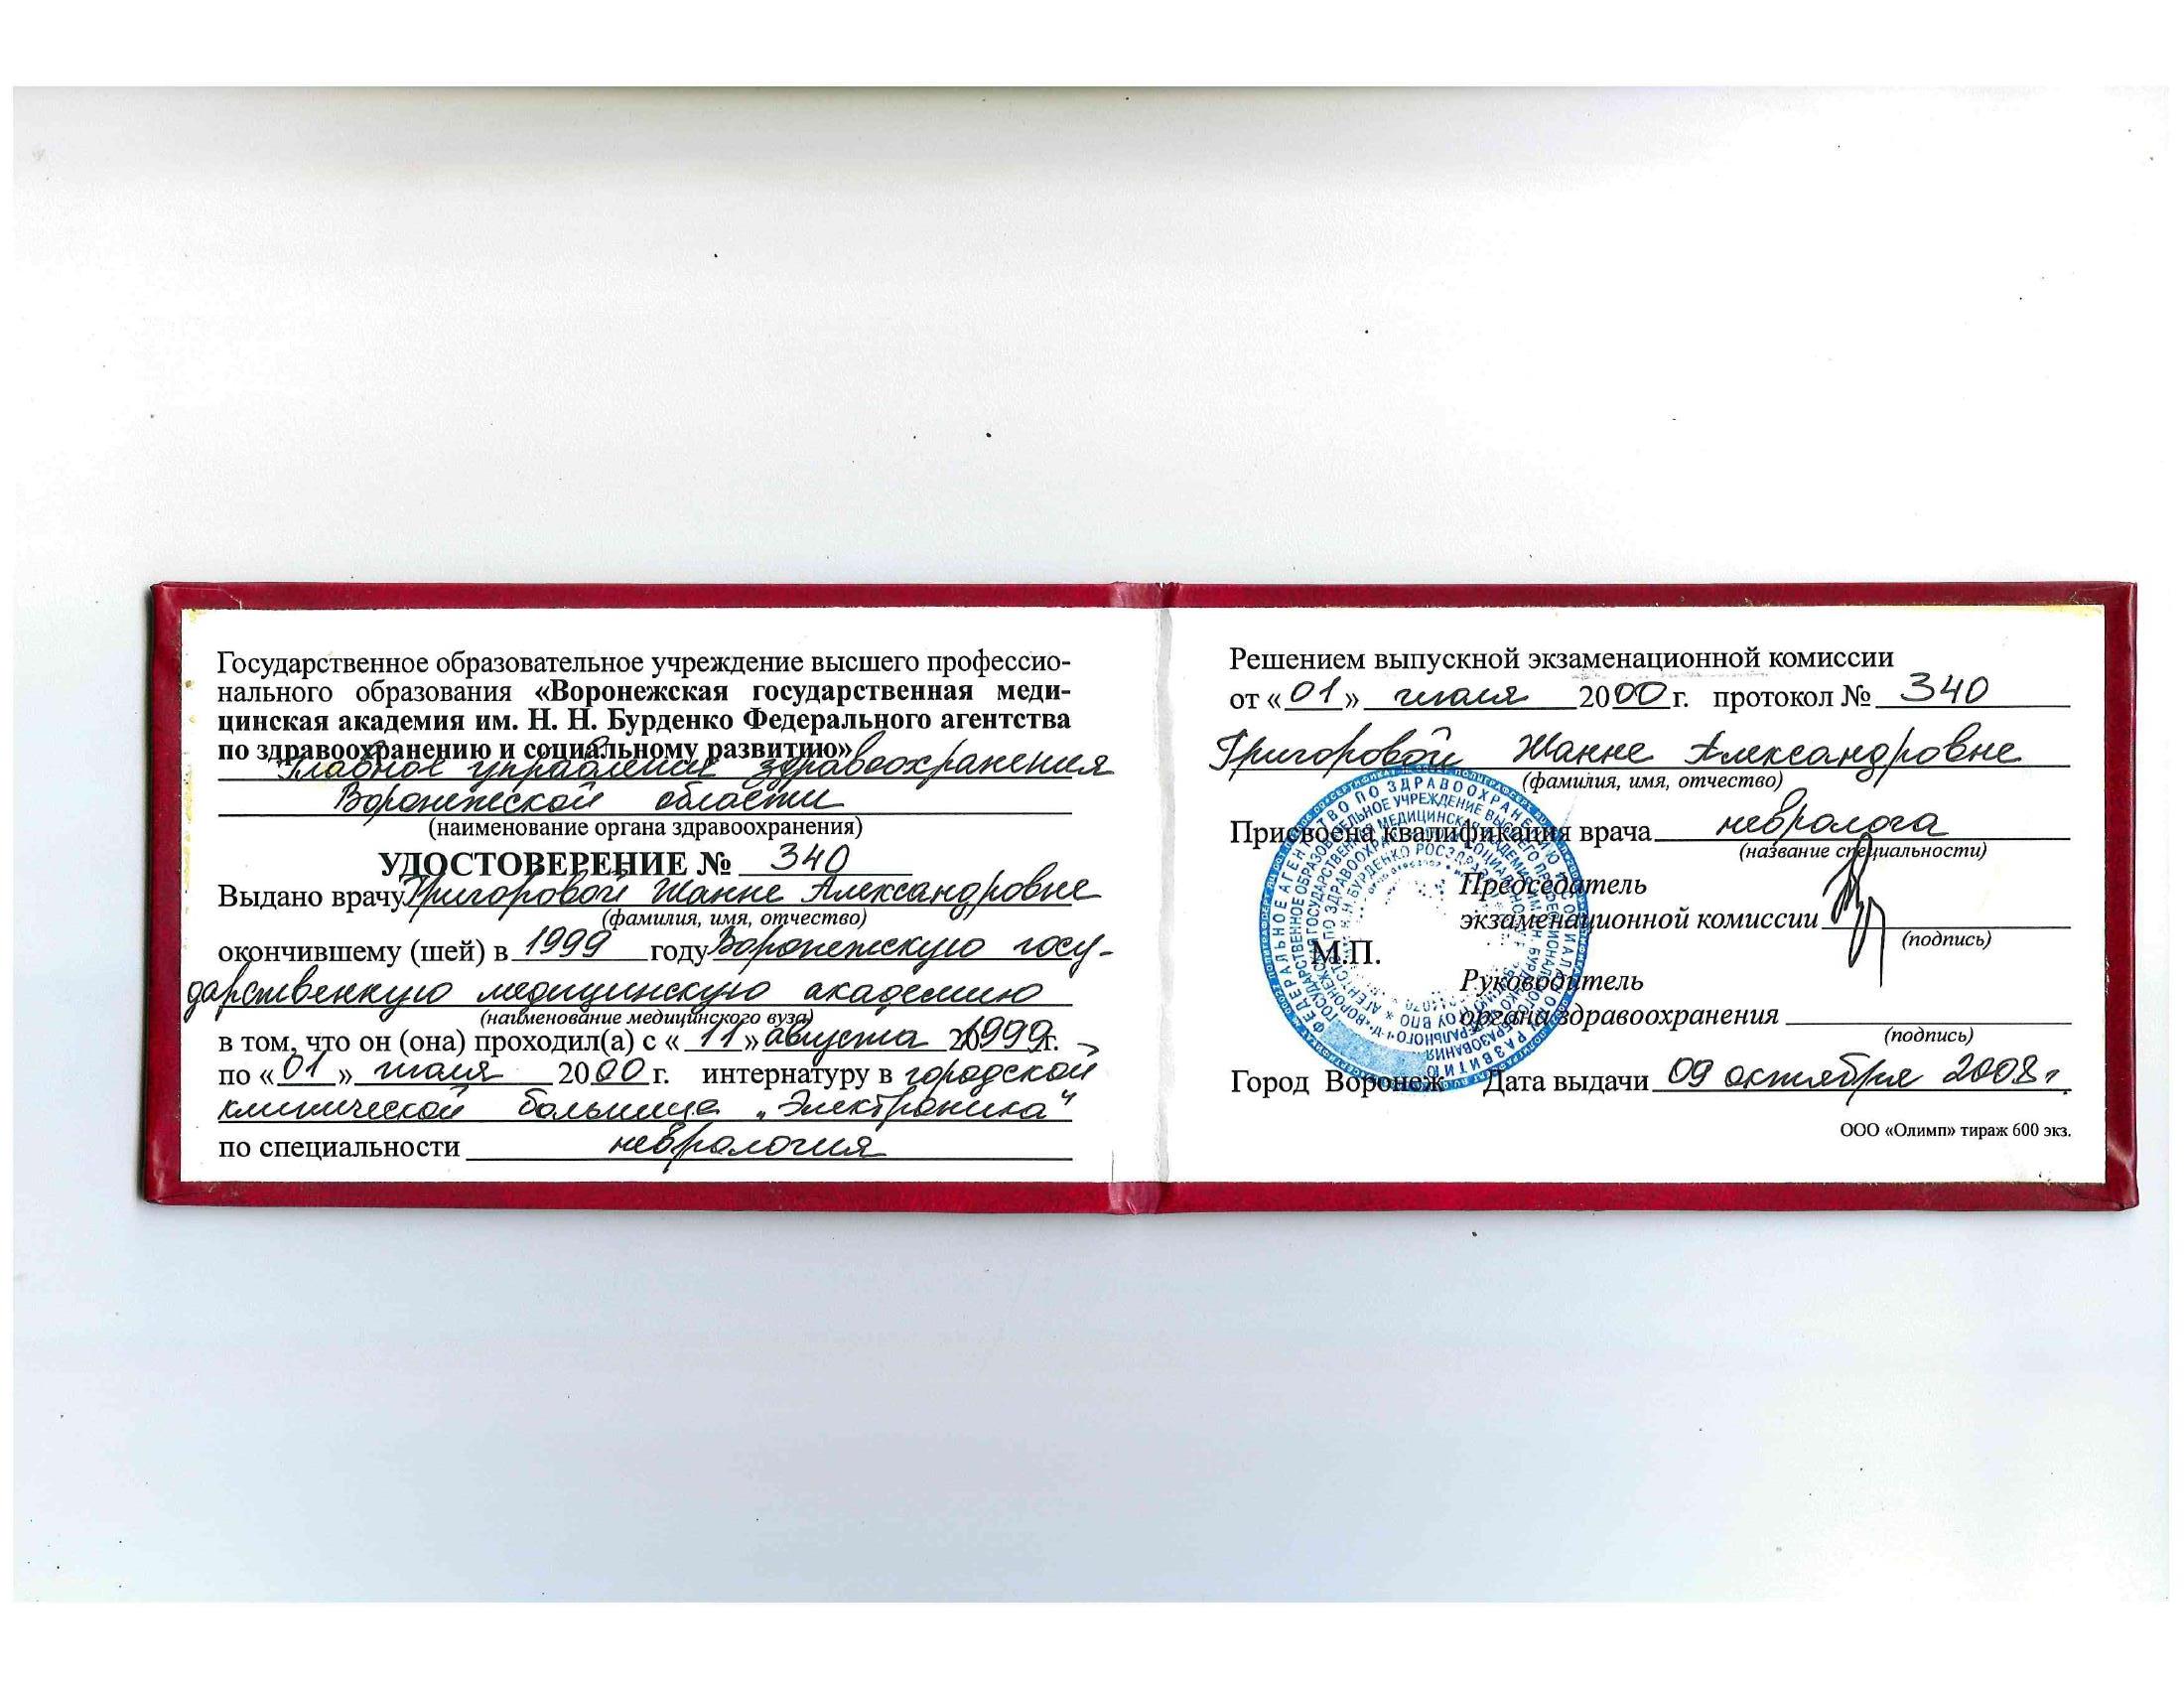 Государственное образовательное учреждение высшего профессио-
нального образования «Воронежская государственная меди-
цинская академия им. Н. Н. Бурденко Федерального агентства
по здравоохранению и социальному развитию»
Главное управление здравоохранения
Воронежской области
(наименование органа здравоохранения)
УДОСТОВЕРЕНИЕ № 340
Выдано врачу Григоровой Жанне Александровне
(фамилия, имя, отчество)
окончившему (шей) в 1999 году Воронежскую госу-
дарственную медицинскую академию
(наименование медицинского вуза)
в том, что он (она) проходил(а) с «11» августа 1999г.
по «01» июля 2000 г. интернатуру в городской
клинической больнице „Электроника“
по специальности неврология
Решением выпускной экзаменационной комиссии
от «01» июля 2000 г. протокол № 340
Григоровой Жанне Александровне
(фамилия, имя, отчество)
Присвоена квалификация врача невролога
(название специальности)
Председатель
экзаменационной комиссии
(подпись)
М.П.
Руководитель
органа здравоохранения
(подпись)
Город Воронеж Дата выдачи 09 октября 2008 г.
ООО «Олимп» тираж 600 экз.